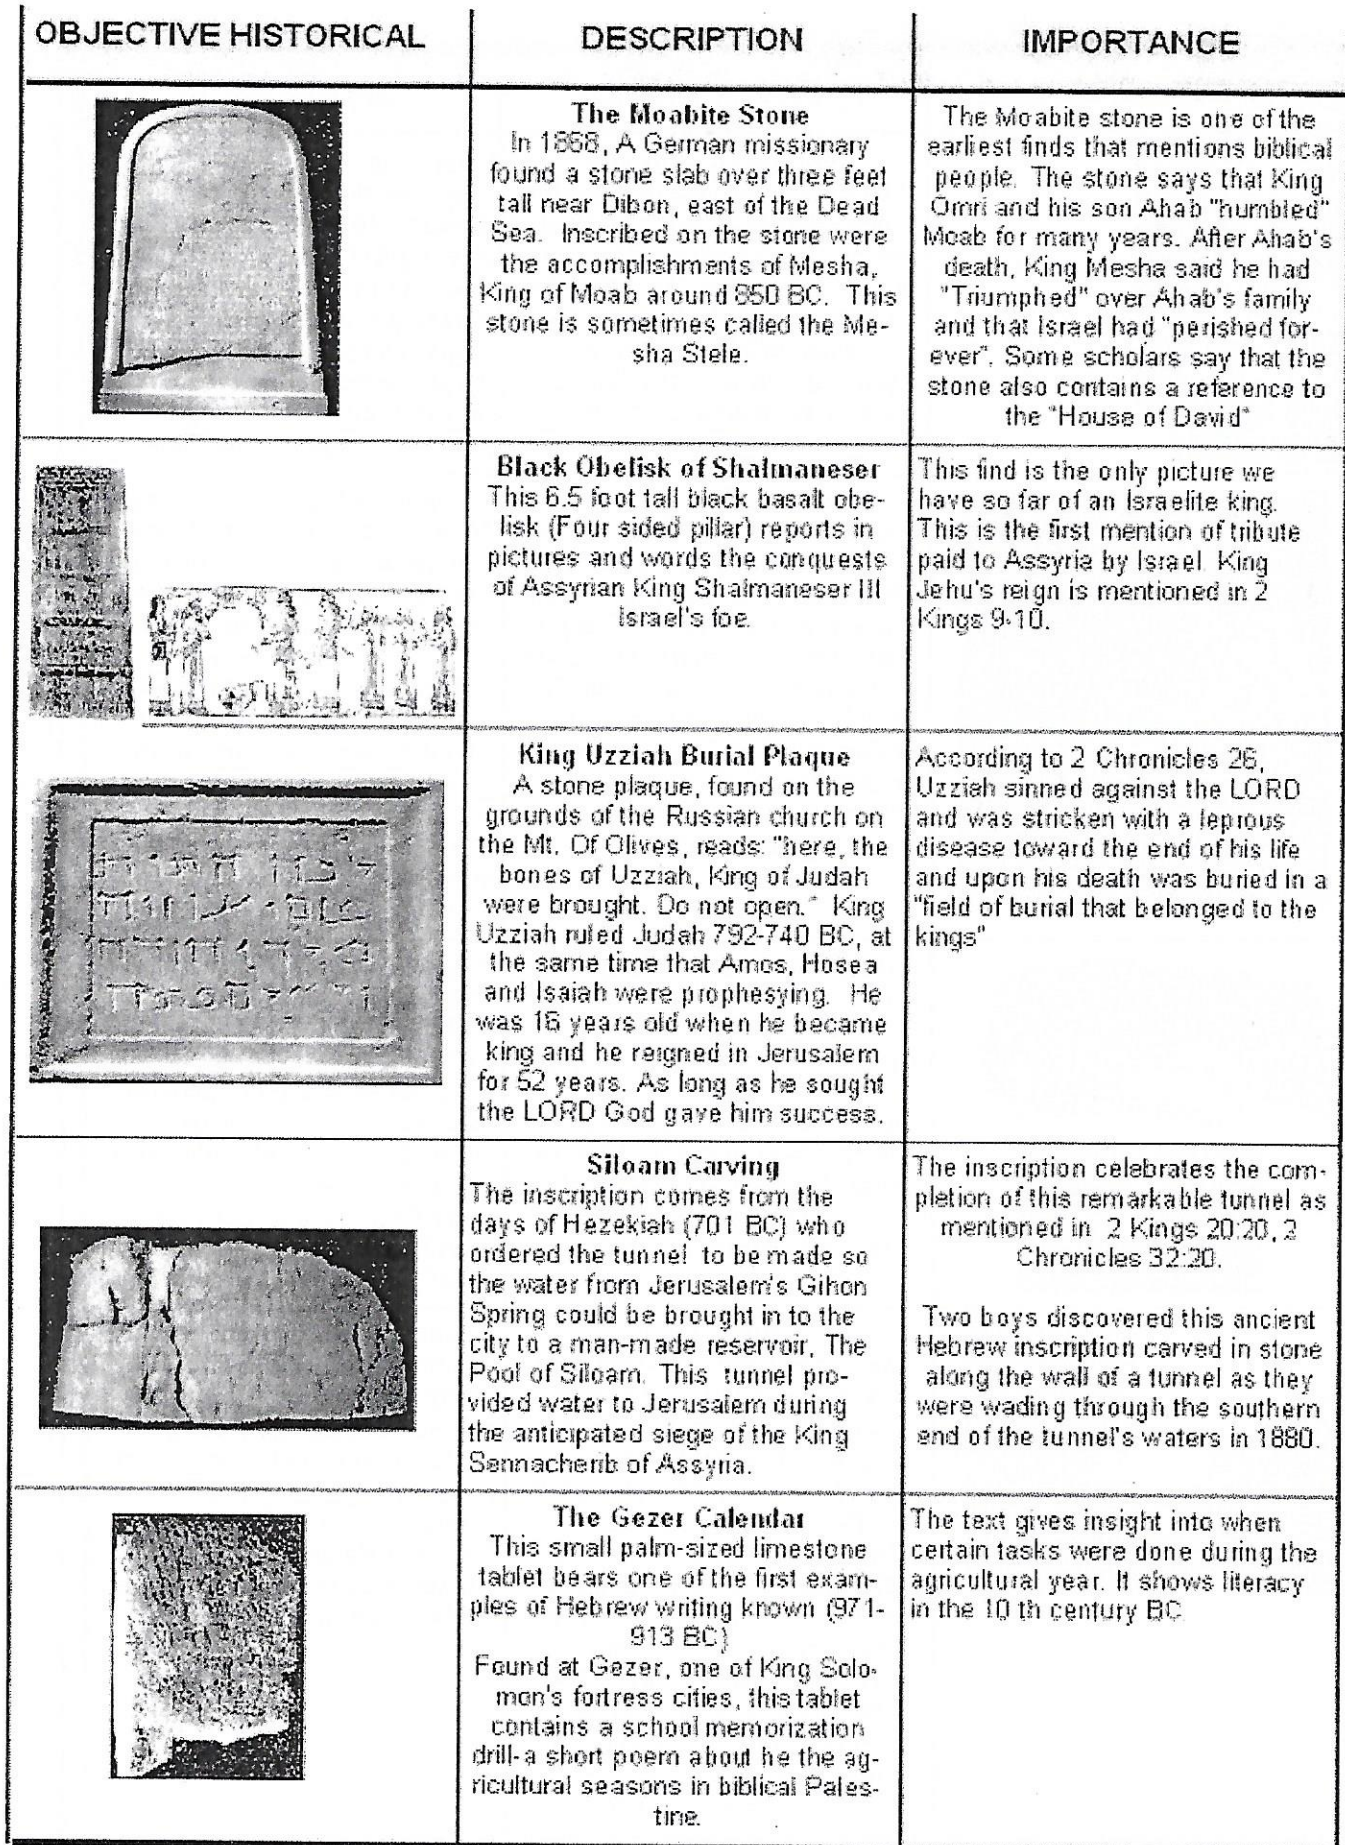 OBJECTIVE HISTORICAL
DESCRIPTION
IMPORTANCE
The Moabite Stone
In 1868, A German missionary
found a stone slab over three feet
tall near Dibon, east of the Dead
Sea. Inscribed on the stone were
the accomplishments of Mesha,
King of Moab around 850 BC. This
stone is sometimes called the Me-
sha Stele.
The Moabite stone is one of the
earliest finds that mentions biblical
people. The stone says that King
Omri and his son Ahab "humbled"
Moab for many years. After Ahab's
death, King Mesha said he had
"Triumphed" over Ahab's family
and that Israel had "perished for-
ever". Some scholars say that the
stone also contains a reference to
the "House of David"
Black Obelisk of Shalmaneser
This 6.5 foot tall black basalt obe-
lisk (Four sided pillar) reports in
pictures and words the conquests
of Assyrian King Shalmaneser III
Israel's foe.
This find is the only picture we
have so far of an Israelite king.
This is the first mention of tribute
paid to Assyria by Israel. King
Jehu's reign is mentioned in 2
Kings 9-10.
King Uzziah Burial Plaque
A stone plaque, found on the
grounds of the Russian church on
the Mt. Of Olives, reads: "here, the
bones of Uzziah, King of Judah
were brought. Do not open." King
Uzziah ruled Judah 792-740 BC, at
the same time that Amos, Hosea
and Isaiah were prophesying. He
was 16 years old when he became
king and he reigned in Jerusalem
for 52 years. As long as he sought
the LORD God gave him success.
According to 2 Chronicles 26,
Uzziah sinned against the LORD
and was stricken with a leprous
disease toward the end of his life
and upon his death was buried in a
"field of burial that belonged to the
kings"
Siloam Carving
The inscription comes from the
days of Hezekiah (701 BC) who
ordered the tunnel to be made so
the water from Jerusalem's Gihon
Spring could be brought in to the
city to a man-made reservoir, The
Pool of Siloam. This tunnel pro-
vided water to Jerusalem during
the anticipated siege of the King
Sennacherib of Assyria.
The inscription celebrates the com-
pletion of this remarkable tunnel as
mentioned in 2 Kings 20:20, 2
Chronicles 32:20.
Two boys discovered this ancient
Hebrew inscription carved in stone
along the wall of a tunnel as they
were wading through the southern
end of the tunnel's waters in 1880.
The Gezer Calendar
This small palm-sized limestone
tablet bears one of the first exam-
ples of Hebrew writing known (971-
913 BC)
Found at Gezer, one of King Solo-
mon's fortress cities, this tablet
contains a school memorization
drill-a short poem about he the ag-
ricultural seasons in biblical Pales-
tine.
The text gives insight into when
certain tasks were done during the
agricultural year. It shows literacy
in the 10 th century BC